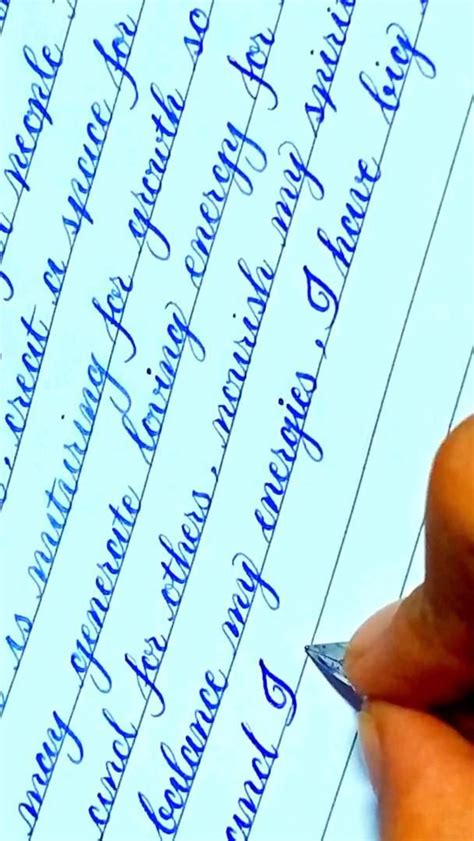 people
, creat a space for
is nuturing for growth so
may generate loving energy for
and for others, nourish my spiri
balance my energies, I have big
and I